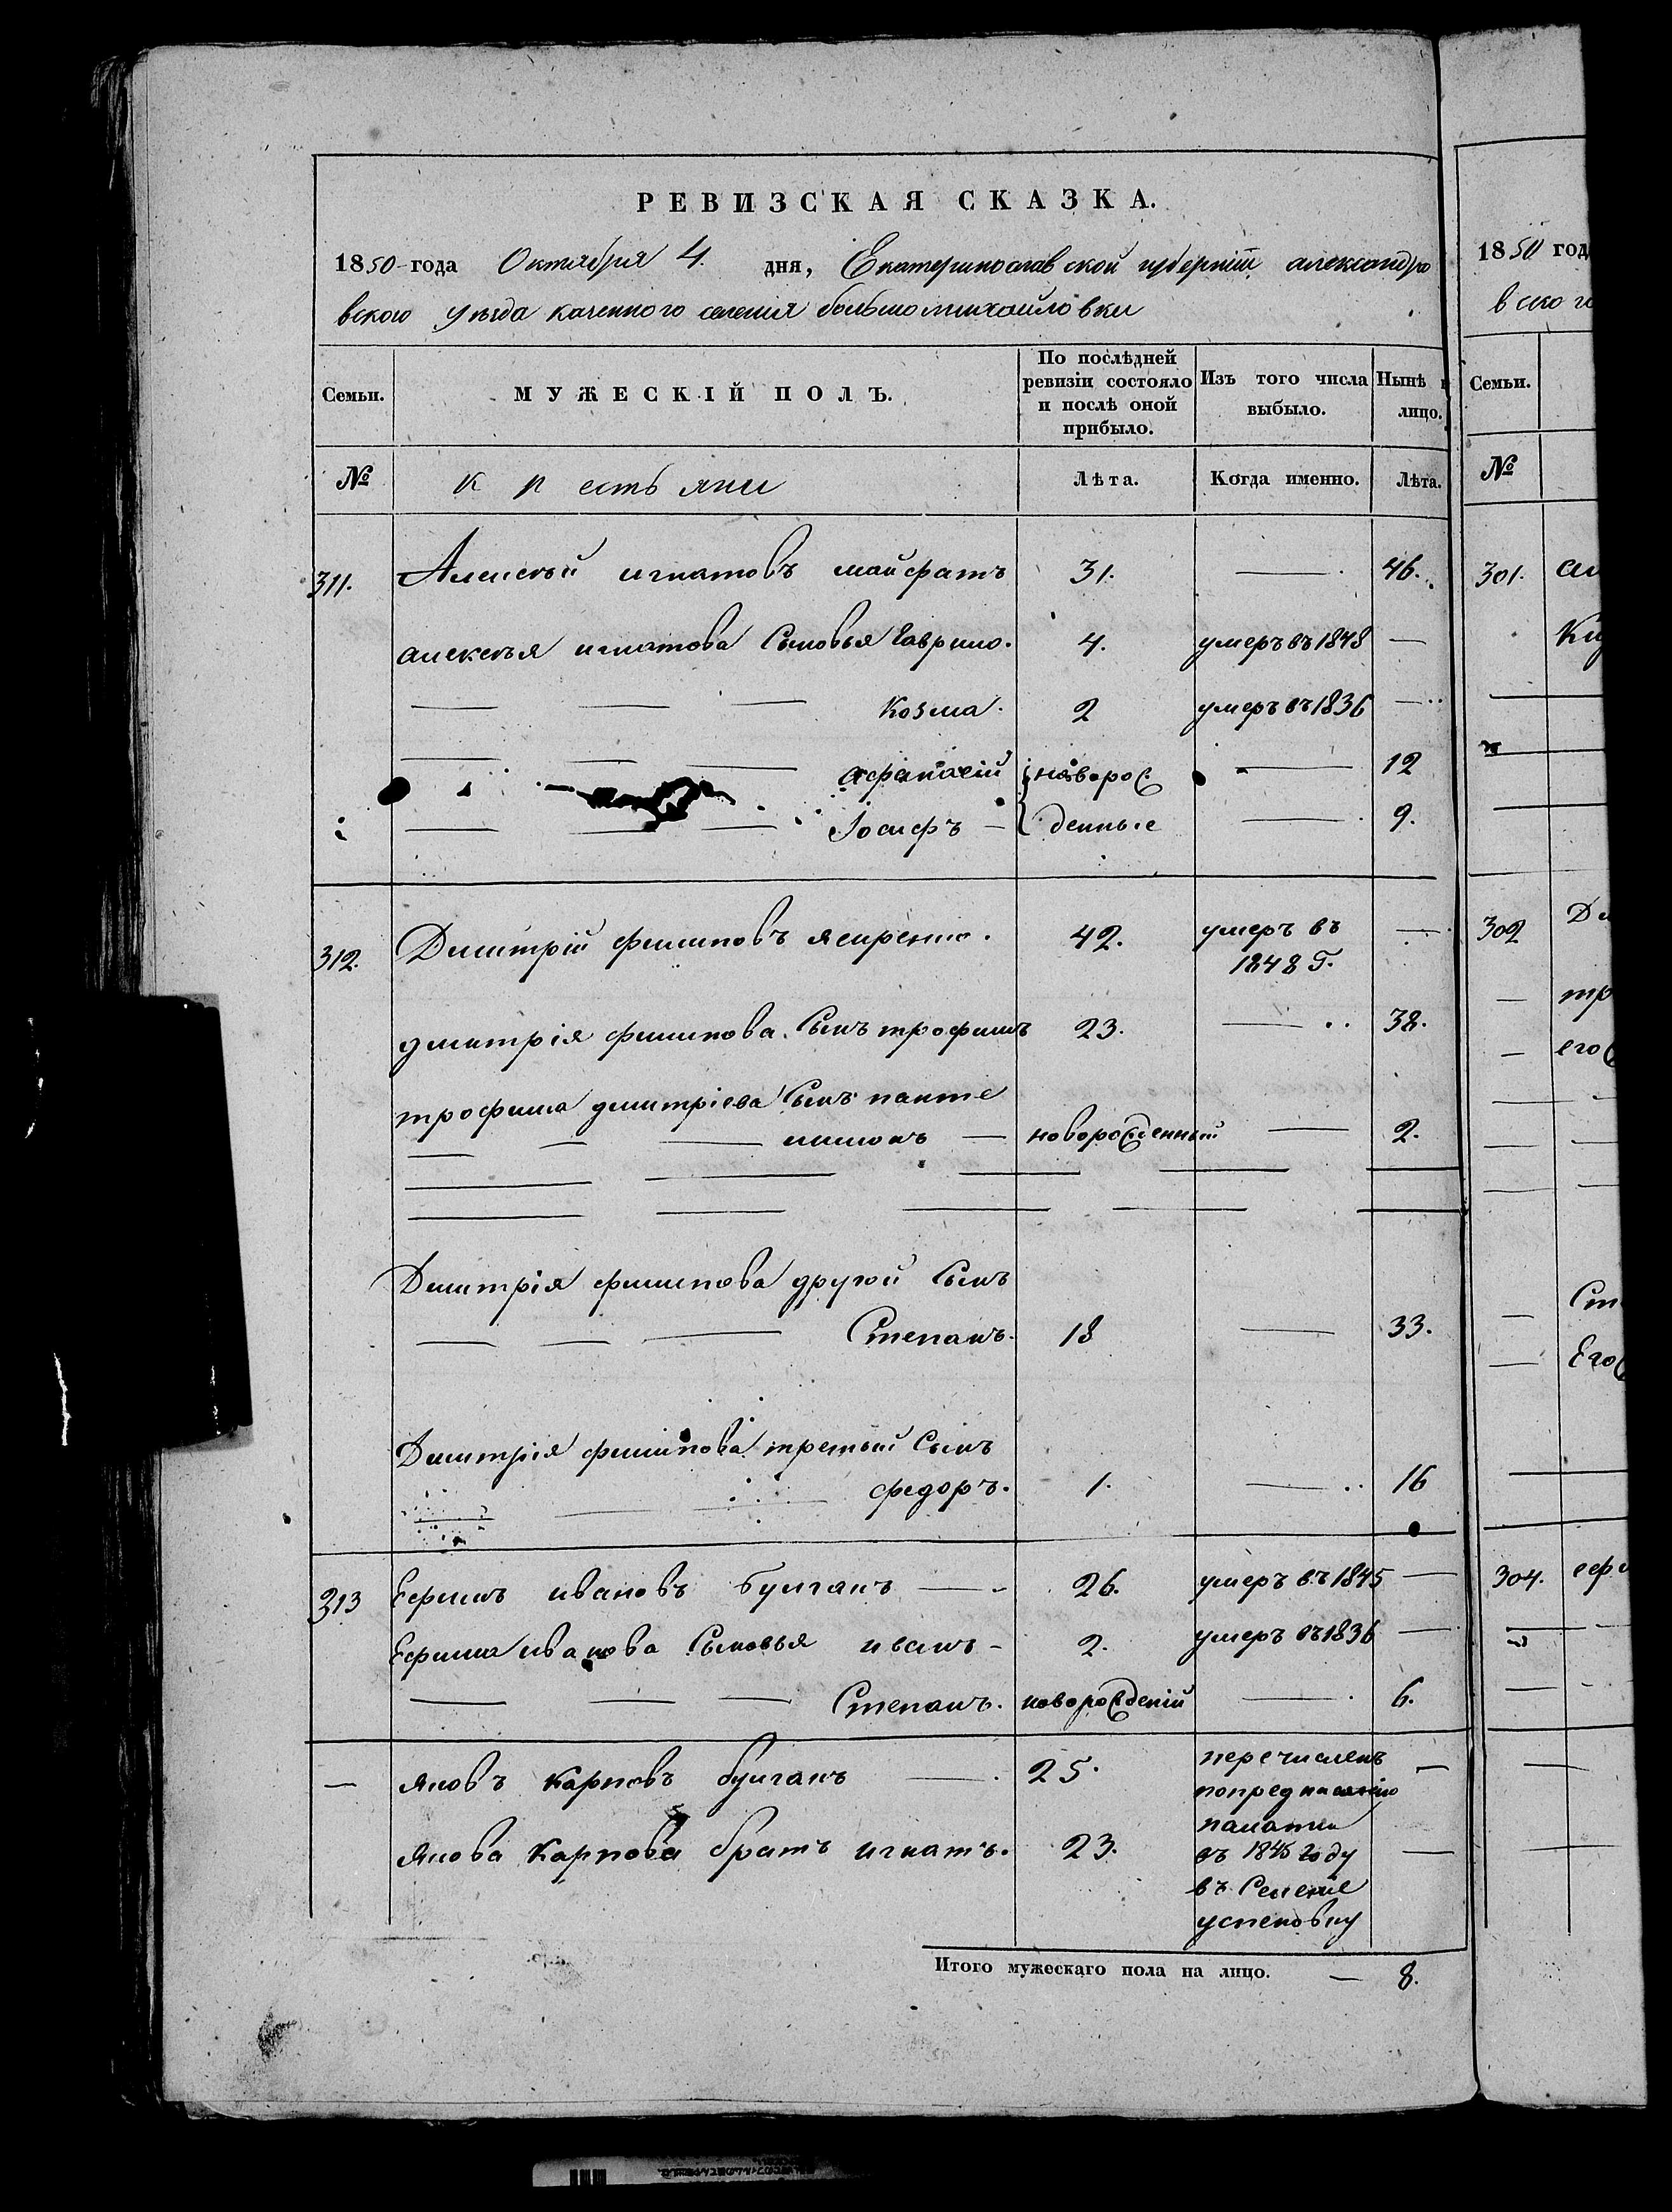 РЕВИЗСКАЯ СКАЗКА.
1850 года Октября 4. дня, Екатеринославской губерніи александро
вского уезда казенного селенія большомихайловки
Семьи. МУЖЕСКІЙ ПОЛЪ. По послѣдней ревизіи состояло и послѣ оной прибыло. Изъ того числа выбыло. Нынѣ лицо.
№ крестьяни Лѣта. Когда именно. Лѣта.
311. Алексѣй игнатовъ 31. — 46.
алексѣя игнатова Сыновья Гаврило. 4. умеръ въ 1848 —
— — — Козма. 2 умеръ въ 1836 —
— — — афанасій новорож — 12
— — — Іосифъ — денные — 9.
312. Димитрій филиповъ 42. умеръ въ —
1848 Г.
дмитрія филипова Сынъ трофимъ 23. — 38.
трофима дмитріева Сынъ панте
— — — лимонъ — новорожденный — 2.
Димитрія филипова другой Сынъ
— — — Степанъ. 18 — 33.
Димитрія филипова третьий Сынъ
— — — федоръ. 1. — 16
313 Ефимъ ивановъ булганъ — 26. умеръ въ 1845 —
Ефима иванова Сыновья иванъ - 2. умеръ въ 1836 —
— — — Степанъ. новорожденій — 6.
— яковъ карповъ булганъ — 25. перечисленъ —
попред
палати
якова Карпова братъ игнатъ. 23. въ 1845 году —
въ Селение
успеновку
Итого мужескаго пола на лицо. — 8.
1850 год
вского
Семьи.
№
301.
302
тр
его
Ст
Его
304. ефи